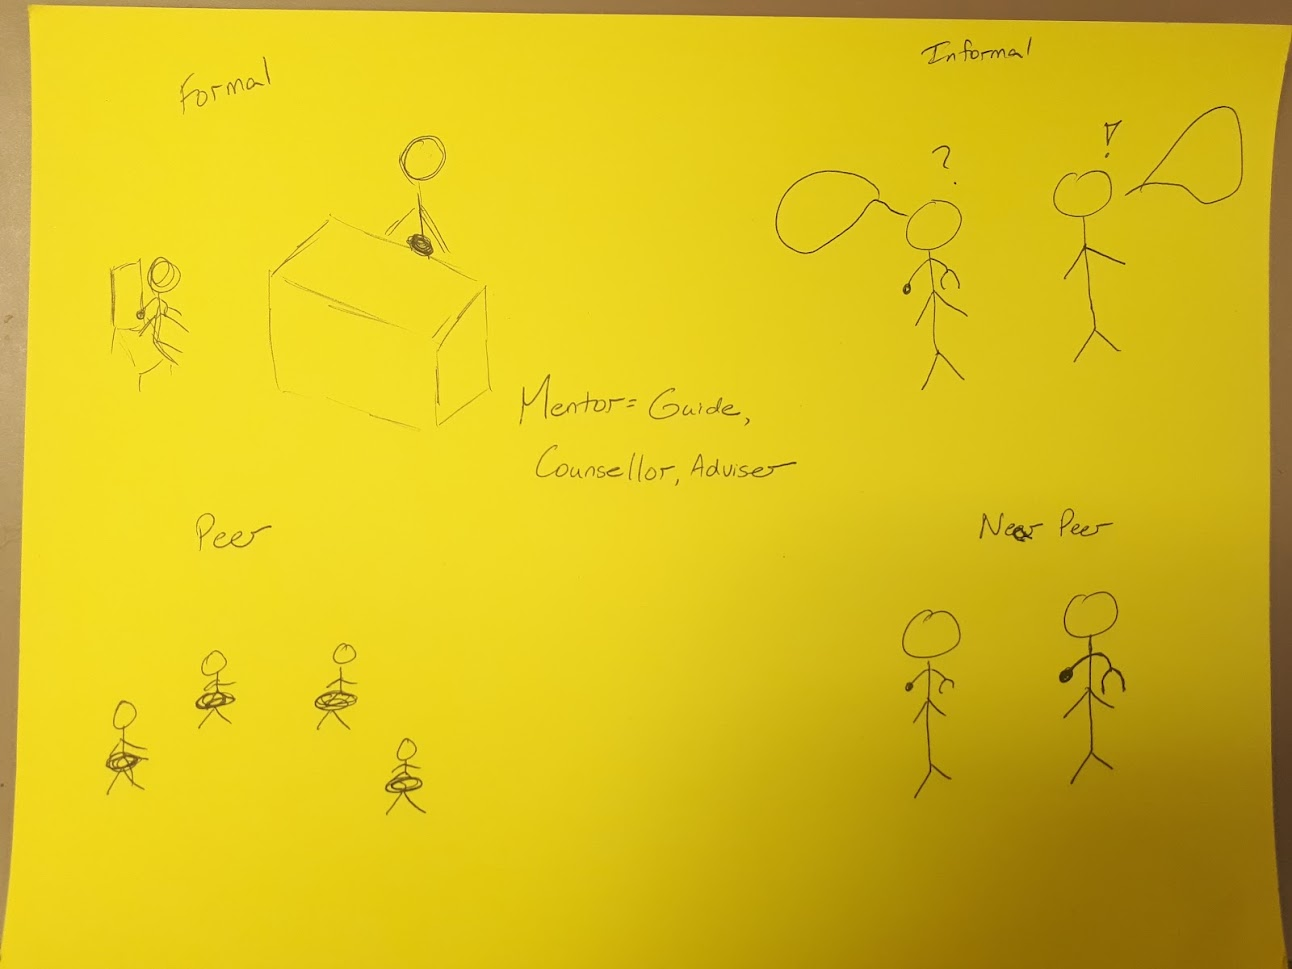 Formal
Informal
?
!
Mentor = Guide,
Counsellor, Adviser
Peer
Near Peer